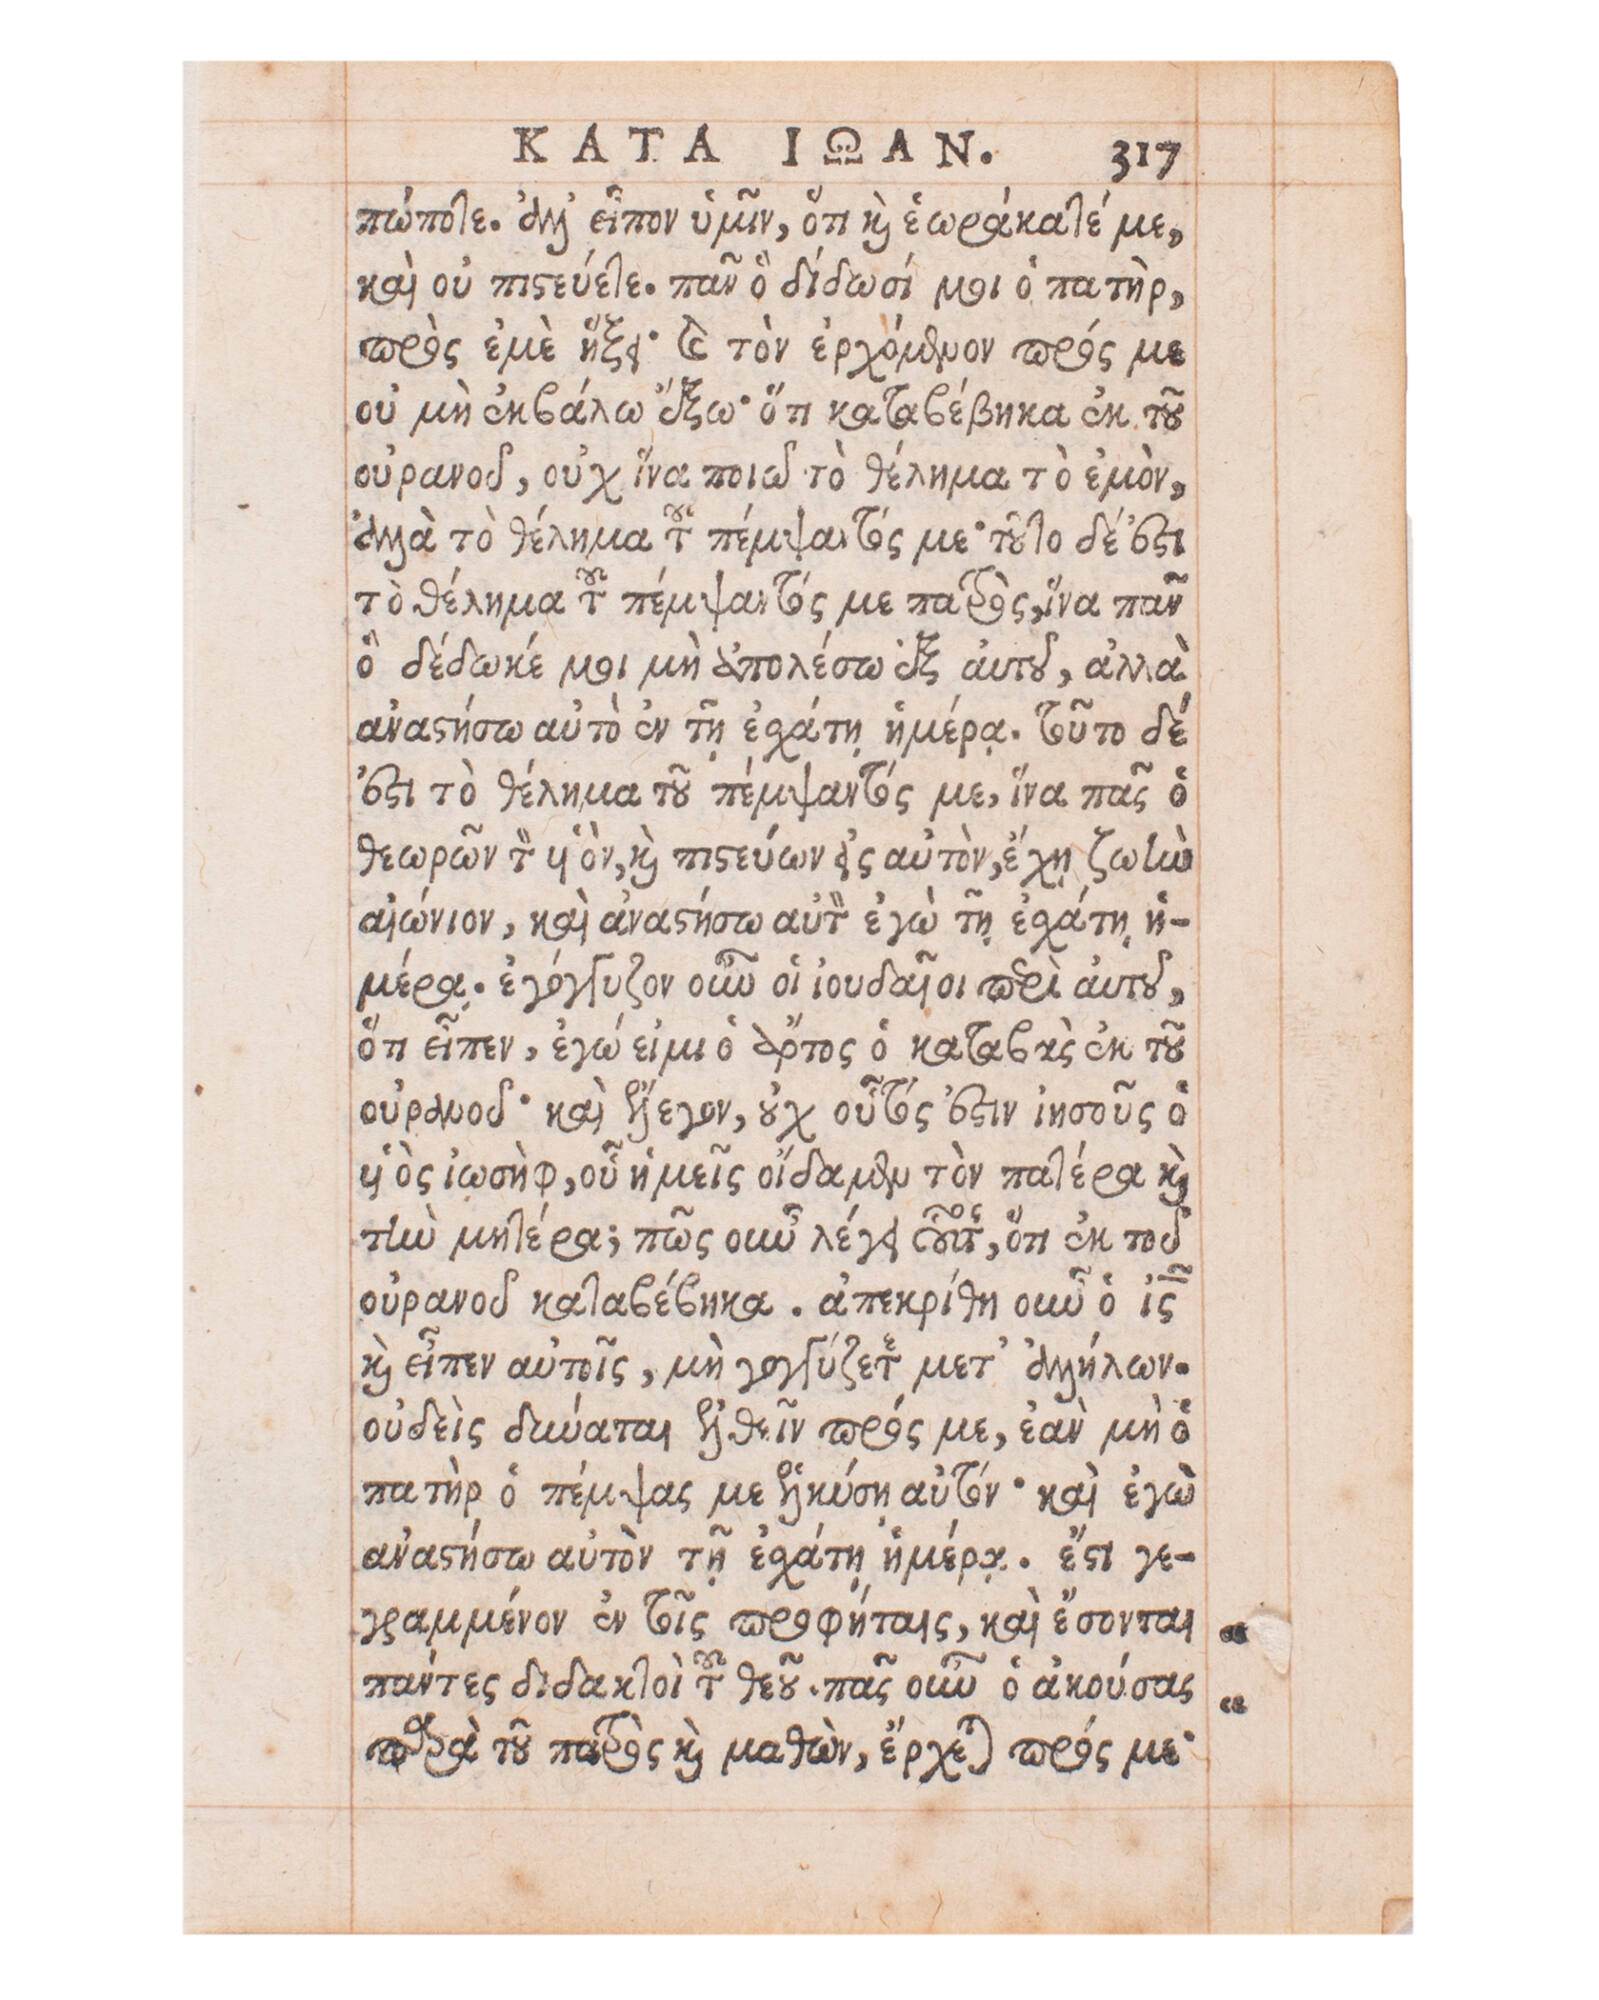 ΚΑΤΑ ΙΩΑΝ. 317
πώποτε. ἀλλ' εἶπον ὑμῖν, ὅτι καὶ ἑωράκατέ με,
καὶ οὐ πιστεύετε. πᾶν ὃ δίδωσί μοι ὁ πατὴρ,
πρὸς ἐμὲ ἥξει· καὶ τὸν ἐρχόμενον πρός με
οὐ μὴ ἐκβάλω ἔξω· ὅτι καταβέβηκα ἐκ τοῦ
οὐρανοῦ, οὐχ ἵνα ποιῶ τὸ θέλημα τὸ ἐμὸν,
ἀλλὰ τὸ θέλημα τοῦ πέμψαντός με· τοῦτο δέ ἐστι
τὸ θέλημα τοῦ πέμψαντός με πατρὸς, ἵνα πᾶν
ὃ δέδωκέ μοι μὴ ἀπολέσω ἐξ αὐτοῦ, ἀλλὰ
ἀναστήσω αὐτὸ ἐν τῇ ἐσχάτῃ ἡμέρᾳ. τοῦτο δέ
ἐστι τὸ θέλημα τοῦ πέμψαντός με, ἵνα πᾶς ὁ
θεωρῶν τὸν υἱὸν, καὶ πιστεύων εἰς αὐτὸν, ἔχῃ ζωὴν
αἰώνιον, καὶ ἀναστήσω αὐτὸν ἐγὼ τῇ ἐσχάτῃ ἡ-
μέρᾳ. ἐγόγγυζον οὖν οἱ ἰουδαῖοι περὶ αὐτοῦ,
ὅτι εἶπεν, ἐγώ εἰμι ὁ ἄρτος ὁ καταβὰς ἐκ τοῦ
οὐρανοῦ· καὶ ἔλεγον, οὐχ οὗτός ἐστιν ἰησοῦς ὁ
υἱὸς ἰωσὴφ, οὗ ἡμεῖς οἴδαμεν τὸν πατέρα καὶ
τὴν μητέρα; πῶς οὖν λέγει οὗτος, ὅτι ἐκ τοῦ
οὐρανοῦ καταβέβηκα. ἀπεκρίθη οὖν ὁ ἰς̅
καὶ εἶπεν αὐτοῖς, μὴ γογγύζετε μετ' ἀλλήλων.
οὐδεὶς δύναται ἐλθεῖν πρός με, ἐὰν μὴ ὁ
πατὴρ ὁ πέμψας με ἑλκύσῃ αὐτόν· καὶ ἐγὼ
ἀναστήσω αὐτὸν τῇ ἐσχάτῃ ἡμέρᾳ. ἔστι γε-
γραμμένον ἐν τοῖς προφήταις, καὶ ἔσονται “
πάντες διδακτοὶ τοῦ θεοῦ. πᾶς οὖν ὁ ἀκούσας “
παρὰ τοῦ πατρὸς καὶ μαθὼν, ἔρχεται πρός με·